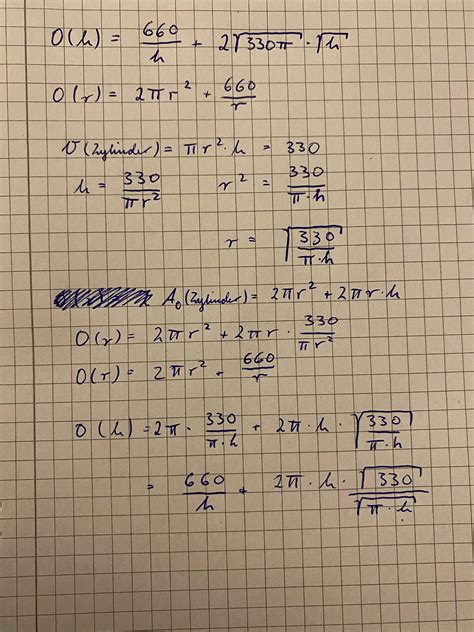 O(h) = 660/h + 2√330π · √h
O(r) = 2πr² + 660/r
V(Zylinder) = πr² · h = 330
h = 330/πr² r² = 330/π·h
r = √(330/π·h)
A₀(Zylinder) = 2πr² + 2πr·h
O(r) = 2πr² + 2πr · 330/πr²
O(r) = 2πr² + 660/r
O(h) = 2π · 330/π·h + 2π·h · √(330/π·h)
= 660/h + 2π·h · √330/√π·h